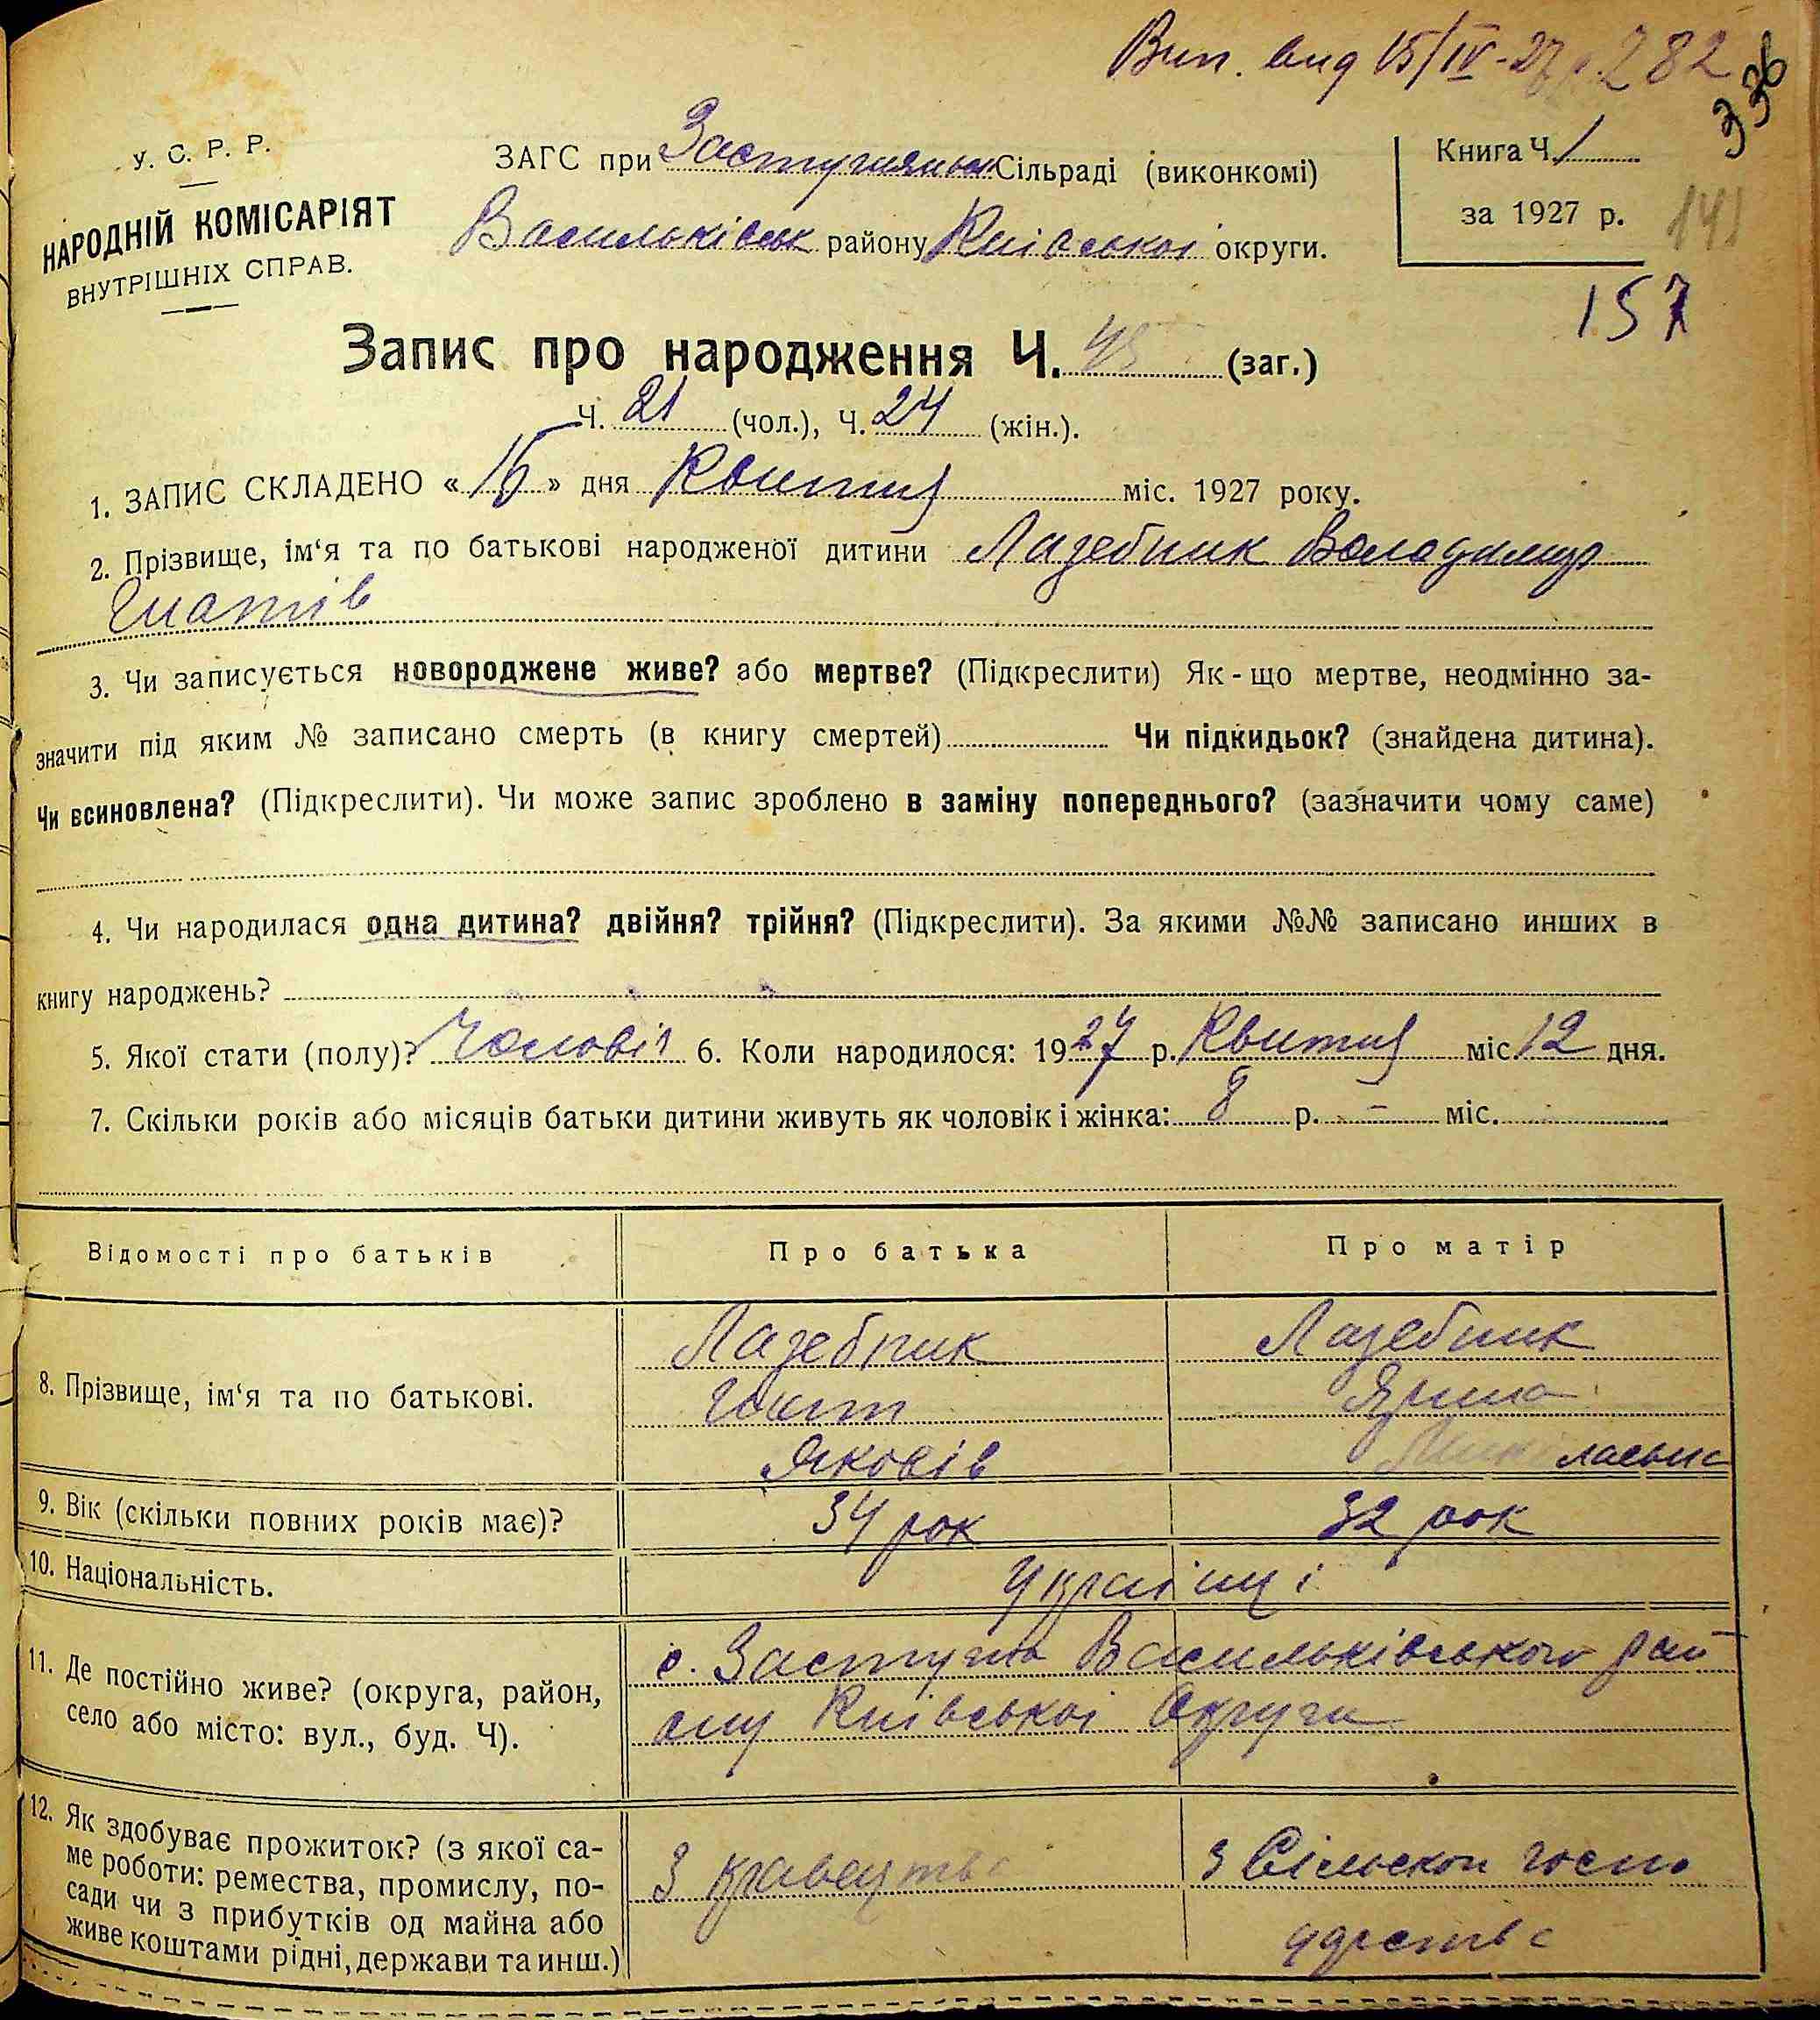 Вип. вид 15/IV-27 р. 282
336
У. С. Р. Р.
НАРОДНІЙ КОМІСАРІЯТ
ВНУТРІШНІХ СПРАВ.
ЗАГС при Застугнянськ Сільраді (виконкомі)
Васильківськ району Київської округи.
Книга Ч. 1
за 1927 р.
141
157
Запис про народження Ч. 45 (заг.)
Ч. 21 (чол.), Ч. 24 (жін.).
1. ЗАПИС СКЛАДЕНО « 15 » дня Квитня міс. 1927 року.
2. Прізвище, ім‘я та по батькові народженої дитини Лазебник Володимир
Гнатів
3. Чи записується новороджене живе? або мертве? (Підкреслити) Як-що мертве, неодмінно за-
значити під яким № записано смерть (в книгу смертей) Чи підкидьок? (знайдена дитина).
Чи всиновлена? (Підкреслити). Чи може запис зроблено в заміну попереднього? (зазначити чому саме)
4. Чи народилася одна дитина? двійня? трійня? (Підкреслити). За якими №№ записано инших в
книгу народжень?
5. Якої стати (полу)? Чоловіч 6. Коли народилося: 1927 р. Квитня міс 12 дня.
7. Скільки років або місяців батьки дитини живуть як чоловік і жінка: 8 р. - міс.
Відомості про батьків Про батька Про матір
8. Прізвище, ім‘я та по батькові.
Лазебник Лазебник
Гнат Ярина
Яковів
9. Вік (скільки повних років має)? 34 рок 32 рок
10. Національність. Українці
11. Де постійно живе? (округа, район,
село або місто: вул., буд. Ч).
с. Застугна Васильківського рай
ону Київської Округи
12. Як здобуває прожиток? (з якої са-
ме роботи: ремества, промислу, по-
сади чи з прибутків од майна або
живе коштами рідні, держави та инш.)
З кравецтва З Сільського госпо
дарства